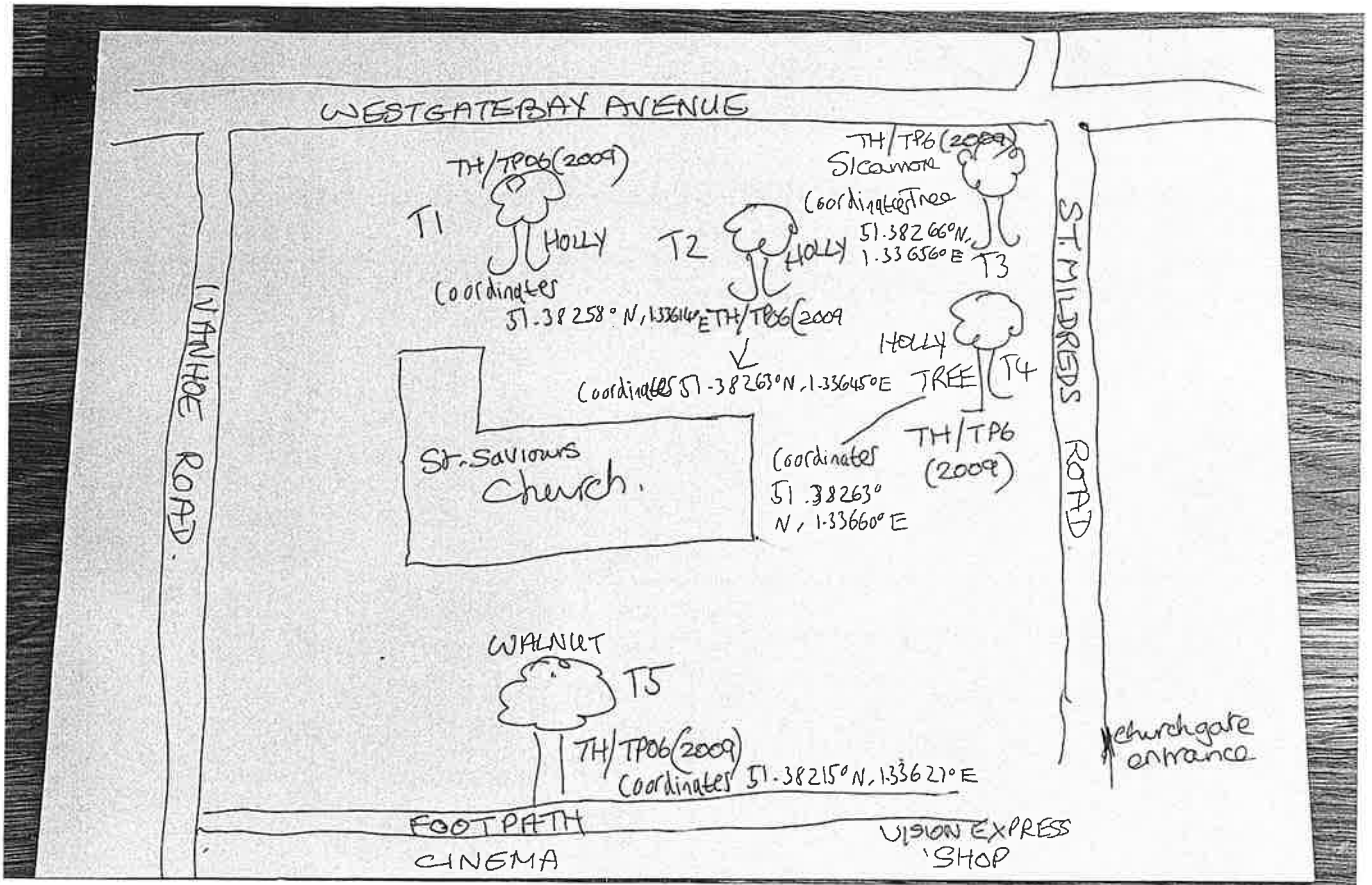 WESTGATEBAY AVENUE
TH/TP06(2009)
T1
HOLLY
Coordinates
51.38258° N, 1.33614°E
T2
HOLLY
TH/TP06(2009
Coordinates 51.38263°N, 1.33645°E
TH/TP6(2009)
Sicamore
Coordinates Tree
51.38266°N,
1.33656°E
T3
HOLLY
TREE
T4
TH/TP6
(2009)
Coordinates
51.38263°
N, 1.33660° E
IVANHOE ROAD.
ST. MILDREDS ROAD
St. Saviours
Church.
WALNUT
T5
TH/TP06(2009)
Coordinates 51.38215°N, 1.33627° E
churchgate
entrance
FOOTPATH
CINEMA
VISION EXPRESS
SHOP